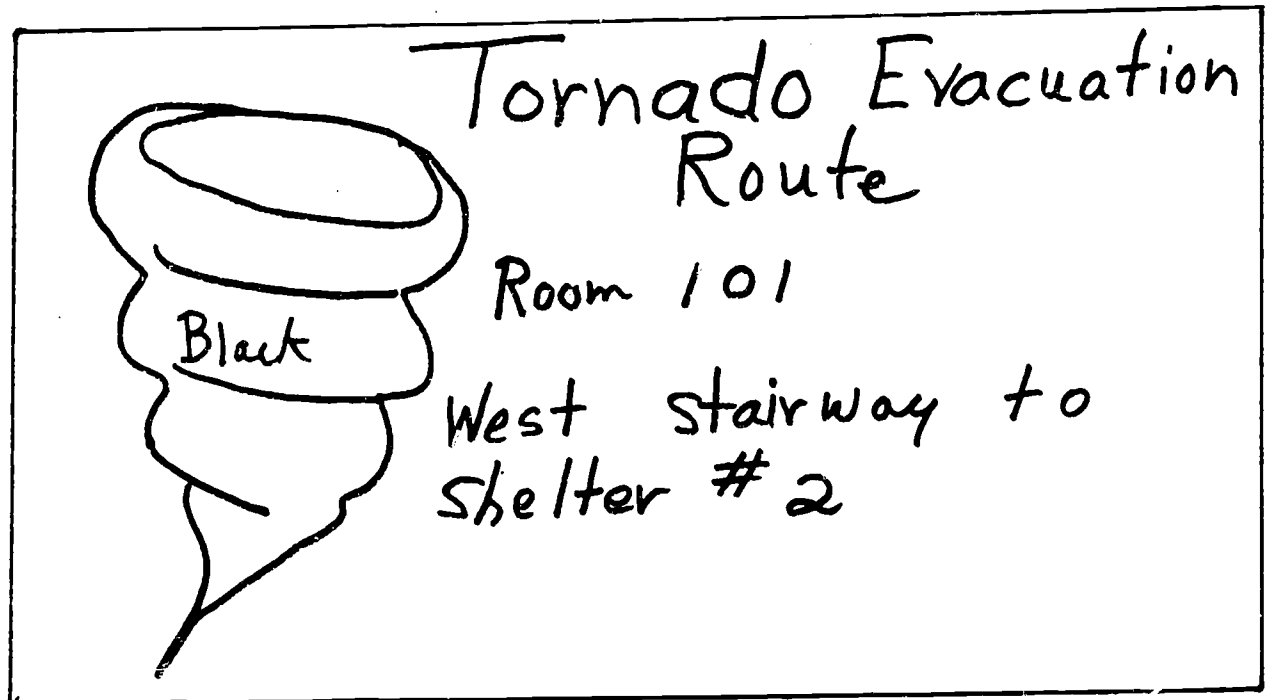 Tornado Evacuation
Route
Room 101
Black
West stairway to
Shelter #2